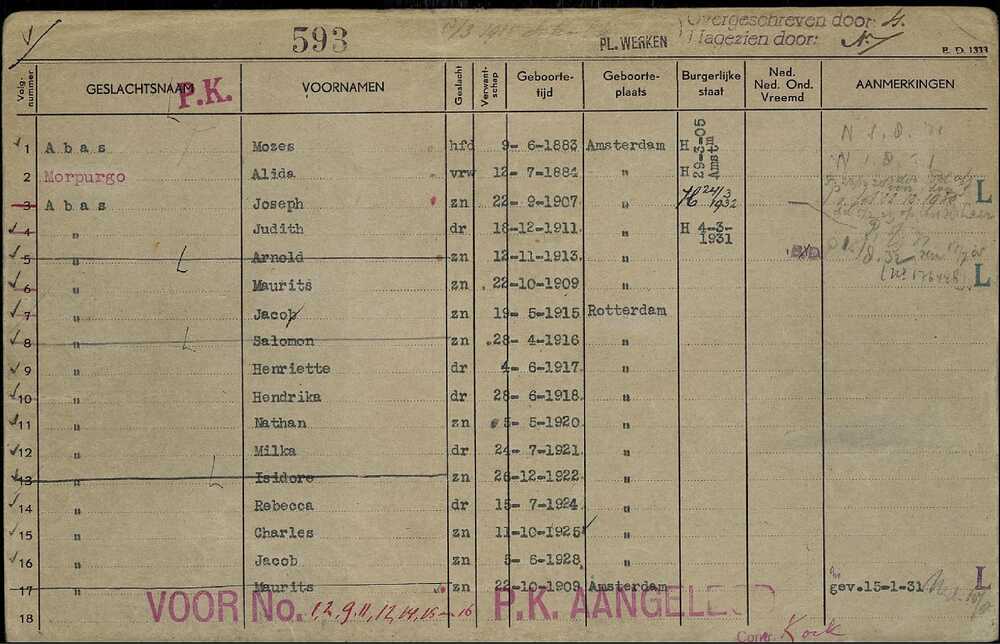 593
PL. WERKEN
Overgeschreven door:
Nagezien door:
B. D. 1333
Volgnummer GESLACHTSNAAM VOORNAMEN Geslacht Verwantschap Geboortetijd Geboorteplaats Burgerlijke staat Ned. Ned. Ond. Vreemd AANMERKINGEN
P.K.
1 Abas Mozes hfd 9- 6-1883 Amsterdam H 29-3-05 Amstm
2 Morpurgo Alida vrw 12- 7-1884 " H
3 Abas Joseph zn 22- 9-1907 " H 24/3 1932 L
4 " Judith dr 18-12-1911 " H 4-3-1931
5 " Arnold zn 12-11-1913 "
6 " Maurits zn 22-10-1909 " L
7 " Jacob zn 19- 5-1915 Rotterdam
8 " Salomon zn 28- 4-1916 "
9 " Henriette dr 4- 6-1917 "
10 " Hendrika dr 28- 6-1918 "
11 " Nathan zn 5- 5-1920 "
12 " Milka dr 24- 7-1921 "
13 " Isidore zn 26-12-1922 "
14 " Rebecca dr 15- 7-1924 "
15 " Charles zn 11-10-1925 "
16 " Jacob zn 5- 6-1928 "
17 " Maurits zn 22-10-1909 Amsterdam gev.15-1-31 L
18
VOOR No. 1,2,9,11,12,14,15-16 P.K. AANGELEGD
Contr. Kock